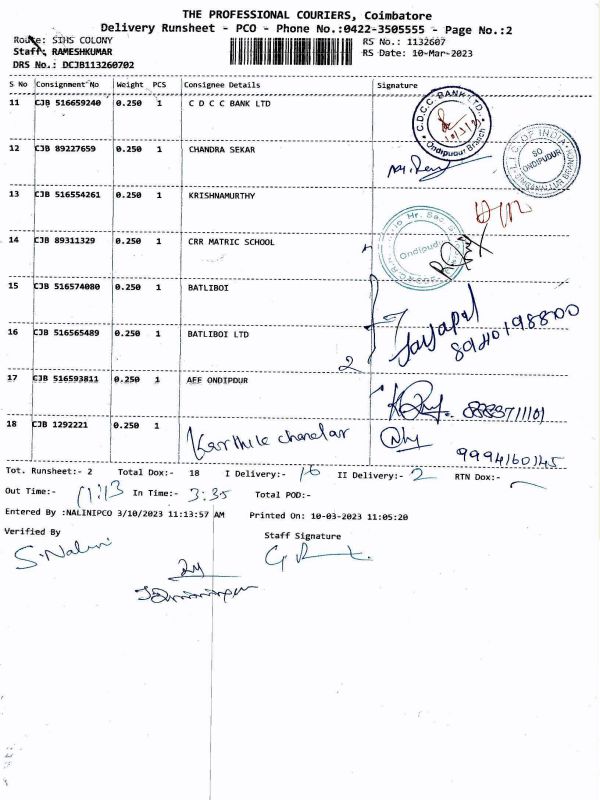 THE PROFESSIONAL COURIERS, Coimbatore
Delivery Runsheet - PCO - Phone No.:0422-3505555 - Page No.:2
Route: SIHS COLONY
RS No.: 1132607
Staff: RAMESHKUMAR
RS Date: 10-Mar-2023
DRS No.: DCJB113260702
S No Consignment No Weight PCS Consignee Details Signature
11 CJB 516659240 0.250 1 C D C C BANK LTD
C.D.C.C. BANK LTD.,
Ondipudur Branch
12 CJB 89227659 0.250 1 CHANDRA SEKAR
L.I.C. OF INDIA
SO
ONDIPUDUR
13 CJB 516554261 0.250 1 KRISHNAMURTHY
14 CJB 89311329 0.250 1 CRR MATRIC SCHOOL
Hr. Sec
Ondipudur
15 CJB 516574080 0.250 1 BATLIBOI
16 CJB 516565489 0.250 1 BATLIBOI LTD
2
Jayapal
17 CJB 516593811 0.250 1 AEE ONDIPDUR
8883711101
18 CJB 1292221 0.250 1
Karthik chandar
9994160145
Tot. Runsheet:- 2 Total Dox:- 18 I Delivery:- 16 II Delivery:- 2 RTN Dox:-
Out Time:- 11:13 In Time:- 3:35 Total POD:-
Entered By :NALINIPCO 3/10/2023 11:13:57 AM Printed On: 10-03-2023 11:05:20
Verified By
Staff Signature
S.Nalini